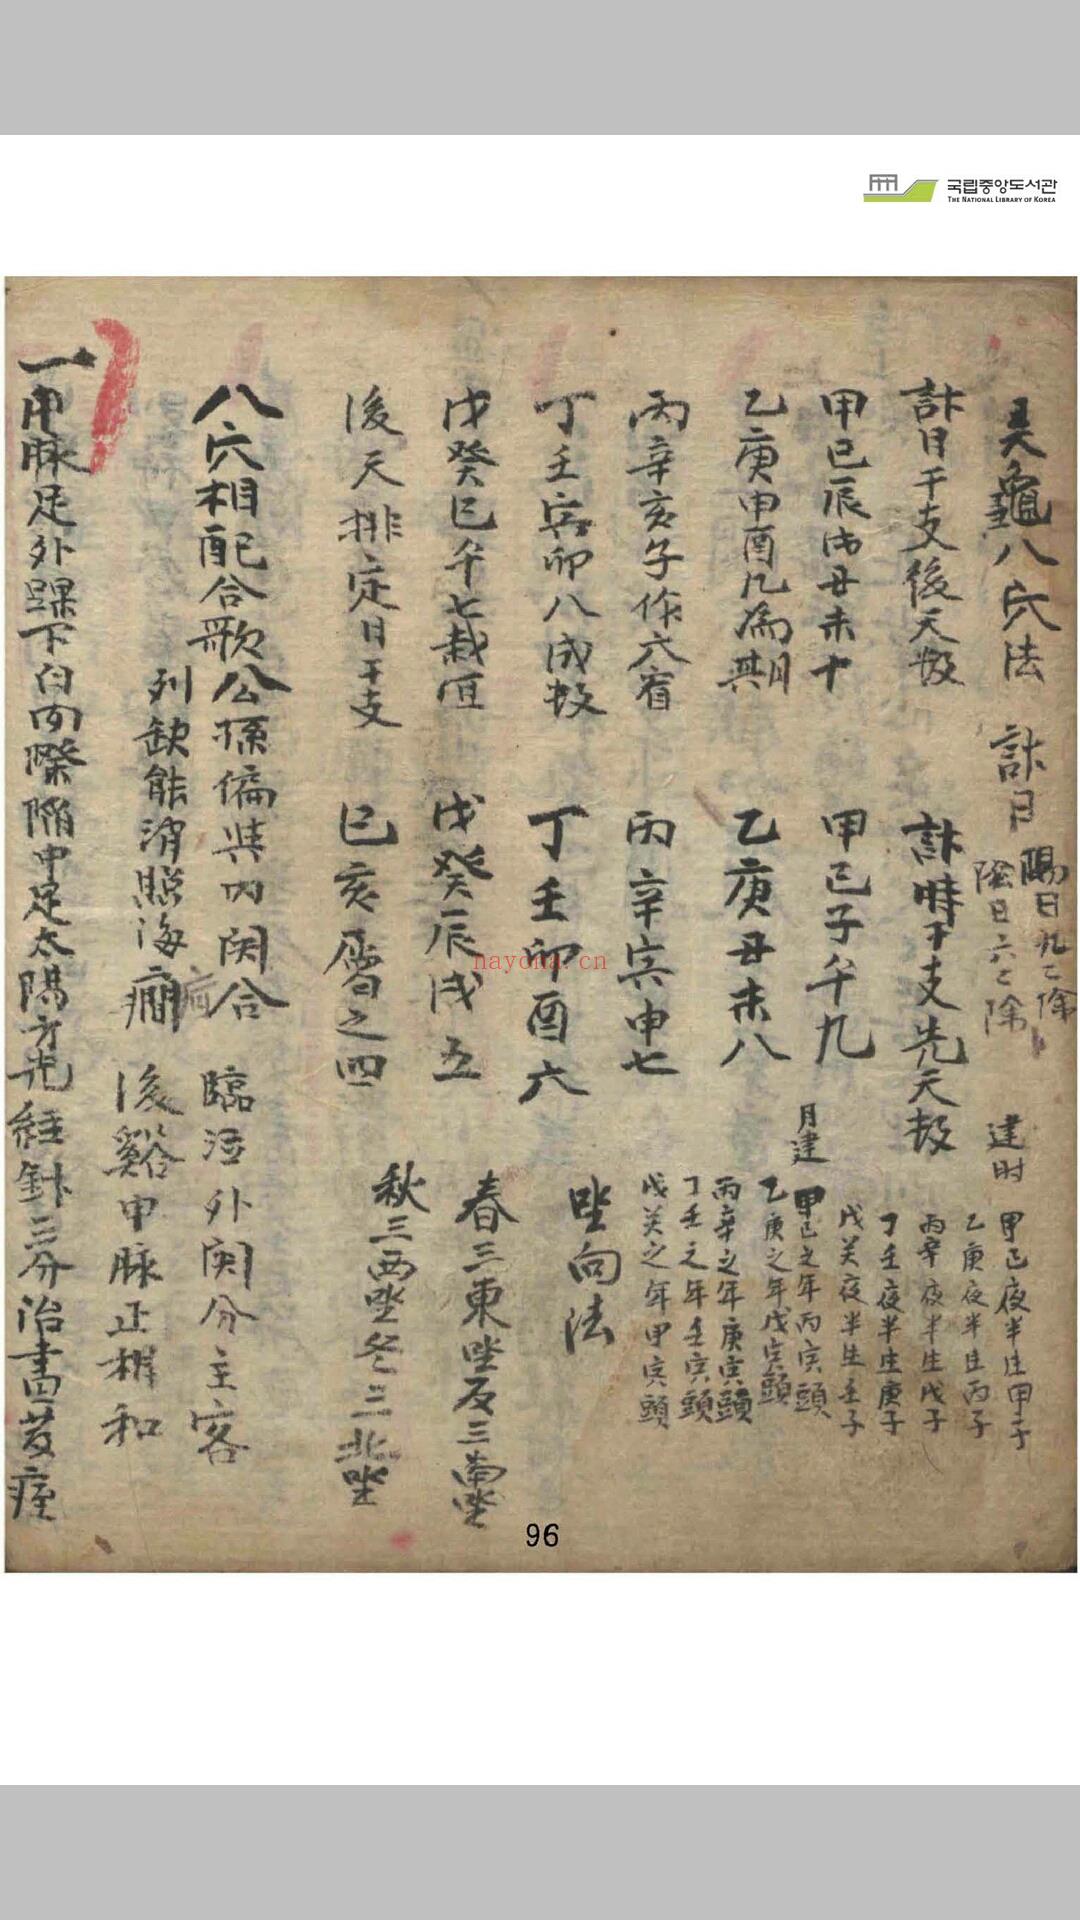 국립중앙도서관
THE NATIONAL LIBRARY OF KOREA
灵龜八穴法 計日 陽日九〻除 陰日六〻除 建时
甲己夜半生甲子
乙庚夜半生丙子
丙辛夜半生戊子
丁壬夜半生庚子
戊癸夜半生壬子
計日干支後天数 計時干支先天数
甲己辰戌丑未十 甲己子午九
月建
甲己之年丙寅頭
乙庚之年戊寅頭
丙辛之年庚寅頭
丁壬之年壬寅頭
戊癸之年甲寅頭
乙庚申酉九為期 乙庚丑未八
丙辛亥子作六宥 丙辛寅申七
丁壬寅卯八成数 丁壬卯酉六
坐向法
戊癸巳午七載 戊癸辰戌五
春三東坐夏三南坐
後天排定日干支 巳亥屬之四
秋三西坐冬三北坐
八穴相配合歌公孫偏與內関合 臨泣外関分主客
列缺能消照海癎 後谿申脉正相和
一申脉足外踝下白肉際陷中足太陽方光経針三分治晝发痓
96
nayona.cn